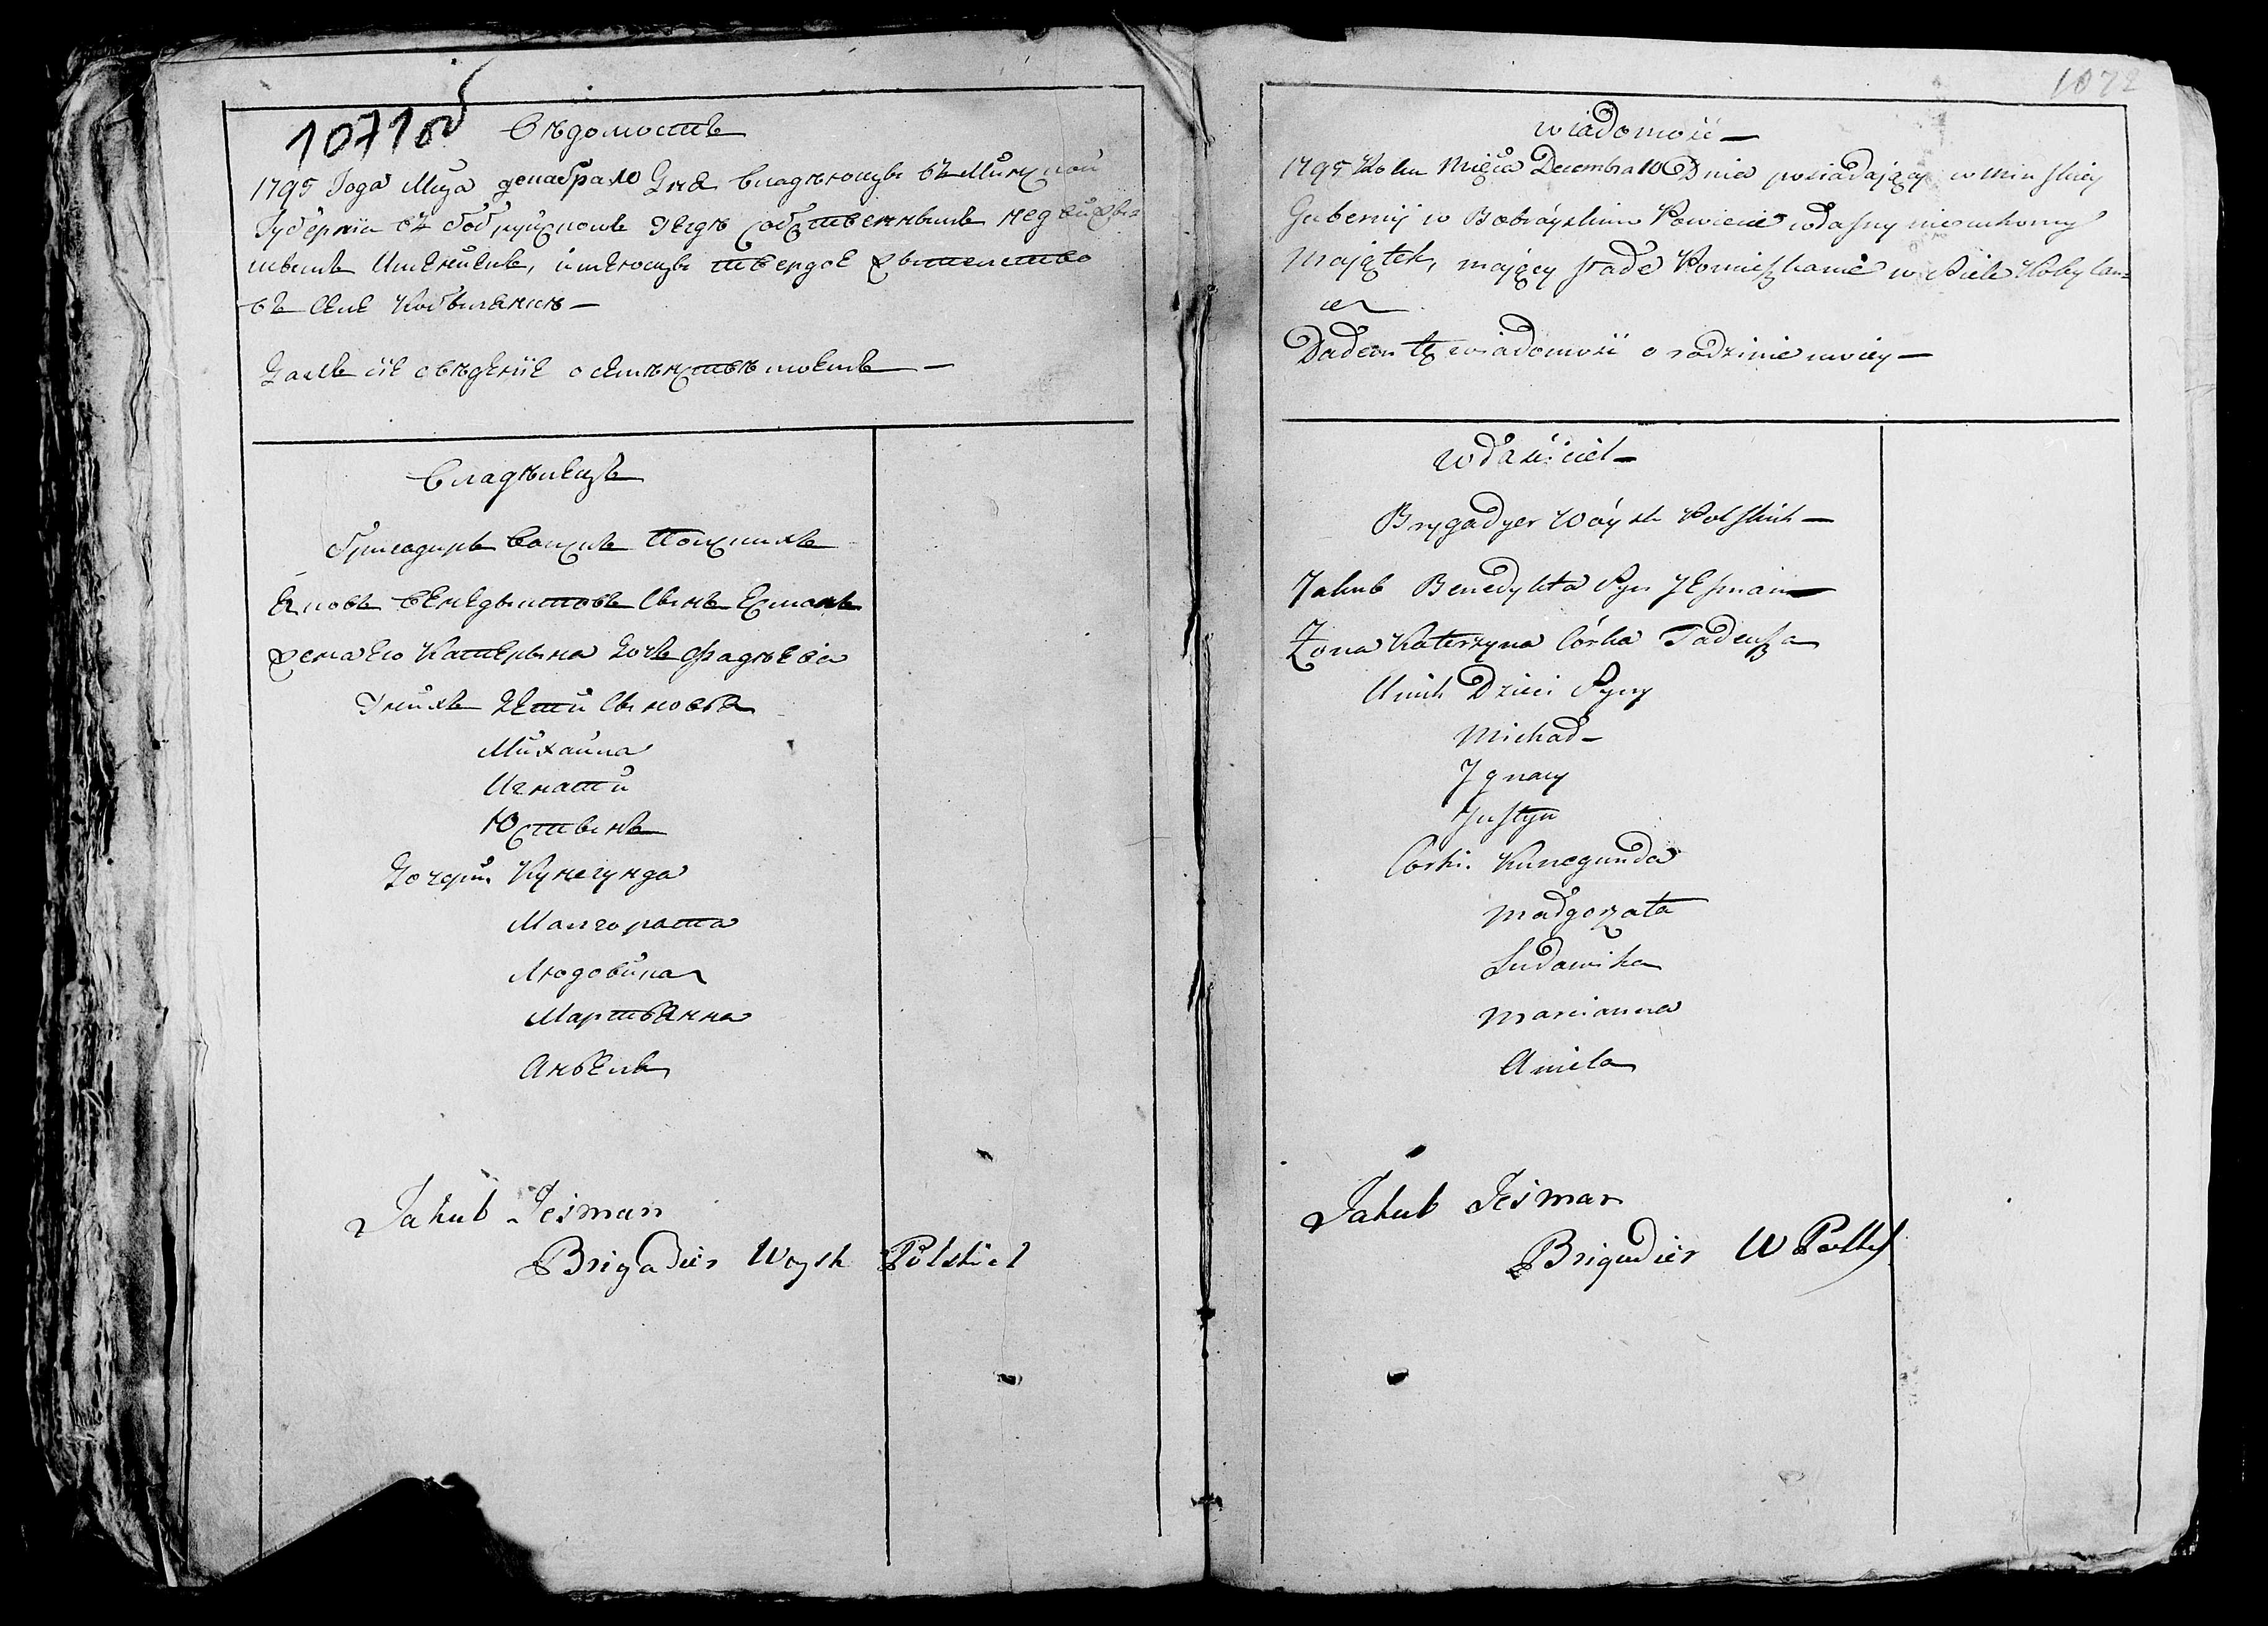 1071об
Вѣдомость
1795 Года Мца декабра 10 Дня владѣющъ въ Минской
Губернiи въ бобруйскомъ уездѣ собственнымъ недвижи=
мымъ Имениемъ, имеющъ твердое жытелство
въ Селе Кобылянкѣ —
Далъ сiе свѣденiе о семѣйствѣ моемъ —
Владѣлецъ
бригадиръ Войскъ Полскихъ
Яковъ Бенедыктовъ Сынъ Есманъ
жена Его Катерына Дочь Фадѣева
У нихъ Дети Сыновья
Михаила
Игнати
Юстынъ
Дочери Кунегунда
Малгората
Людовика
Марцьянна
Аньеля
Jakub Jesman
Brigadier Woysk Polskich
1072
wiadomość —
1795 Roku Mięca Decembra 10 Dnia posiadaiący w Minskiey
Gubernij w Bobróyskim Powiecie własny nieruchomy
Maiątek, maiący stałe Pomieszkanie w Siele Kobylan=
ce
Dałem tę wiadomość o rodzinie moiey —
Właściciel —
Brygadyer Wóysk Polskich —
Jakub Benedykta Syn Jesman
Żona Katerzyna Córka Tadeusza
U nich Dzieci Syny
Michał —
Ignacy
Justyn
Corki. Kunegunda
Małgorzata
Ludawika
Marcianna
Aniela
Jakub Jesman
Brigadier W Polsk